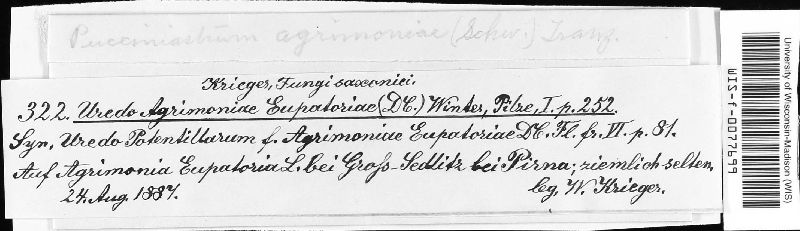 Pucciniastrum agrimoniae (Schw.) Tranz.
Krieger, Fungi saxonici.
322. Uredo Agrimoniae Eupatoriae (DC.) Winter, Pilze, I. p. 252.
Syn. Uredo Potentillarum f. Agrimoniae Eupatoriae DC. Fl. fr. VI. p. 81.
Auf Agrimonia Eupatoria L. bei Gross-Sedlitz bei Pirna; ziemlich selten.
24. Aug. 1887.
leg. W. Krieger.
University of Wisconsin-Madison (WIS)
WIS-f-0077659